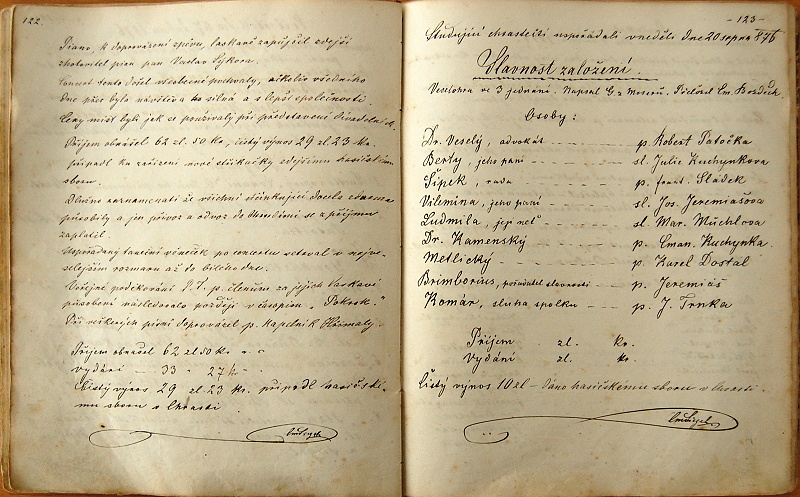 122.
Piano, k doprovázení zpěvu, laskavě zapůjčil zdejší
zhotovitel pian pan Václav Sýkora.
Concert tento došel všeobecné pochvaly, nikoliv všedního
Dne přes bylo návštěva silná a s lepší společností.
Ceny míst byly jak se používaly při představení divadelních.
Příjem obnášel 62 zl. 50 kr., čistý výnos 29 zl. 23 kr.
připadl ku zařízení nové stříkačky zdejšímu hasičskému
sboru.
Dlužno zaznamenati že všichni účinkující docela zdarma
působili a jen přívoz a odvoz do Chrudimi se z příjmu
zaplatil.
Uspořádaný taneční věneček po concertu setrval v nejve-
selejším rozmaru až do bílého dne.
Veřejné poděkování P. T. p. členům za jejich laskavé
působení následovalo později v časopisu „Pokrok."
Při veškerých písní doprovázel p. kapelník Hřímalý.
Příjem obnášel 62 zl 50 kr
Vydání — 33 - 27 kr
Čistý výnos 29 zl. 23 kr. připadl hasičské-
mu sboru v Chrasti.
- 123 -
Studující chrastečtí uspořádali v neděli dne 20 srpna 876
Slavnost založení.
Veselohra ve 3 jednání. Napsal G. z Moserů. Přeložil Em. Bozděch
Osoby:
Dr. Veselý, advokát - - - - p. Robert Patočka
Berty, jeho paní - - - - sl. Julie Kuchynkova
Šípek, rada - - - - p. frant. Sládek
Vilemína, jeho paní - - - - sl. Jos. Jeremiášova
Ludmila, její neť - - - - sl. Mar. Müchlova
Dr. Kamenský - - - - p. Eman. Kuchynka.
Metlický - - - - p. Karel Dostál
Brimborius, pořadatel slavnosti - - p. Jeremiáš
Komár, sluha spolku - - - p. J. Trnka
Příjem . zl. kr.
Vydání zl. kr.
Čistý výnos 10 zl - dáno hasičskému sboru v Chrasti.